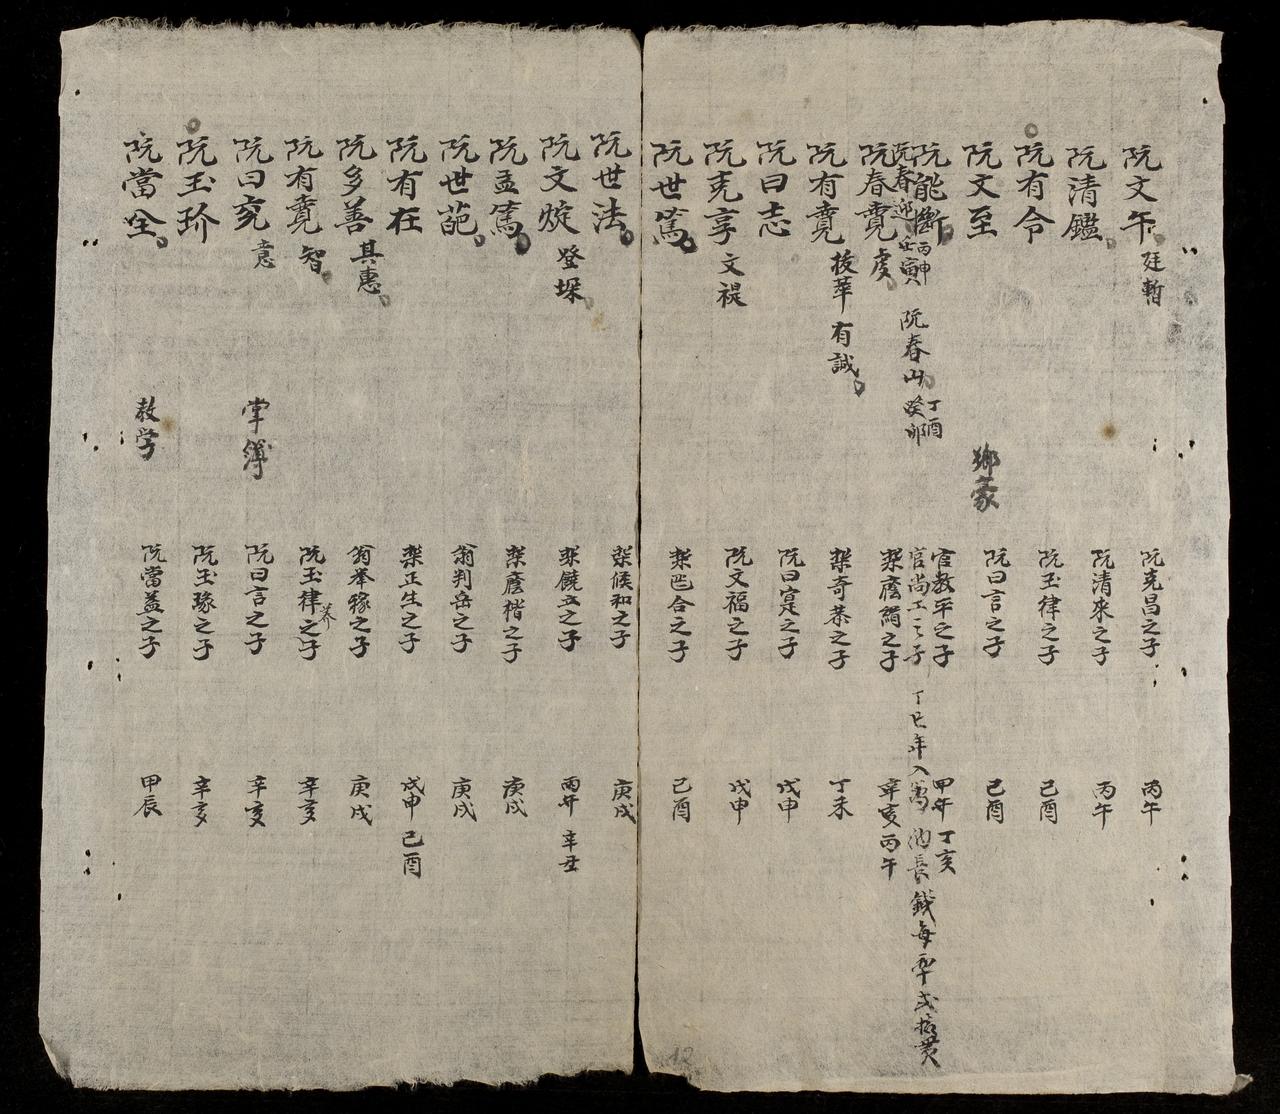 阮文午 廷暫 阮克昌之子 丙午
阮清鑑 阮清來之子 丙午
阮有令 阮玉律之子 己酉
阮文至 鄉蒙 阮曰言之子 己酉
阮能斷 丙申 官教平之子 甲午 丁亥
阮春迎 壬寅 阮春山 丁酉 癸卯 官尚工之子 丁巳年入 長錢每 貳拾貫
阮春賁 虔 之子 辛亥 丙午
阮有賁 拔萃 有誠 奇恭之子 丁未
阮曰志 阮曰寔之子 戊申
阮克享 文禔 阮文福之子 戊申
阮世篤 合之子 己酉
阮世法 候和之子 庚戌
阮文 登垛 饒立之子 丙午 辛丑
阮孟篤 楷之子 庚戌
阮世葩 翁判岳之子 庚戌
阮有在 正生之子 戊申 己酉
阮多善 其惠 翁舉穟之子 庚戌
阮有賁 智 阮玉律之子 养 辛亥
阮曰兖 意 掌簿 阮曰言之子 辛亥
阮玉玠 阮玉琢之子 辛亥
阮當 教学 阮當益之子 甲辰
12